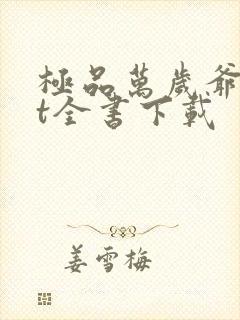 極品萬歲爺
t全書下載
姜雪梅